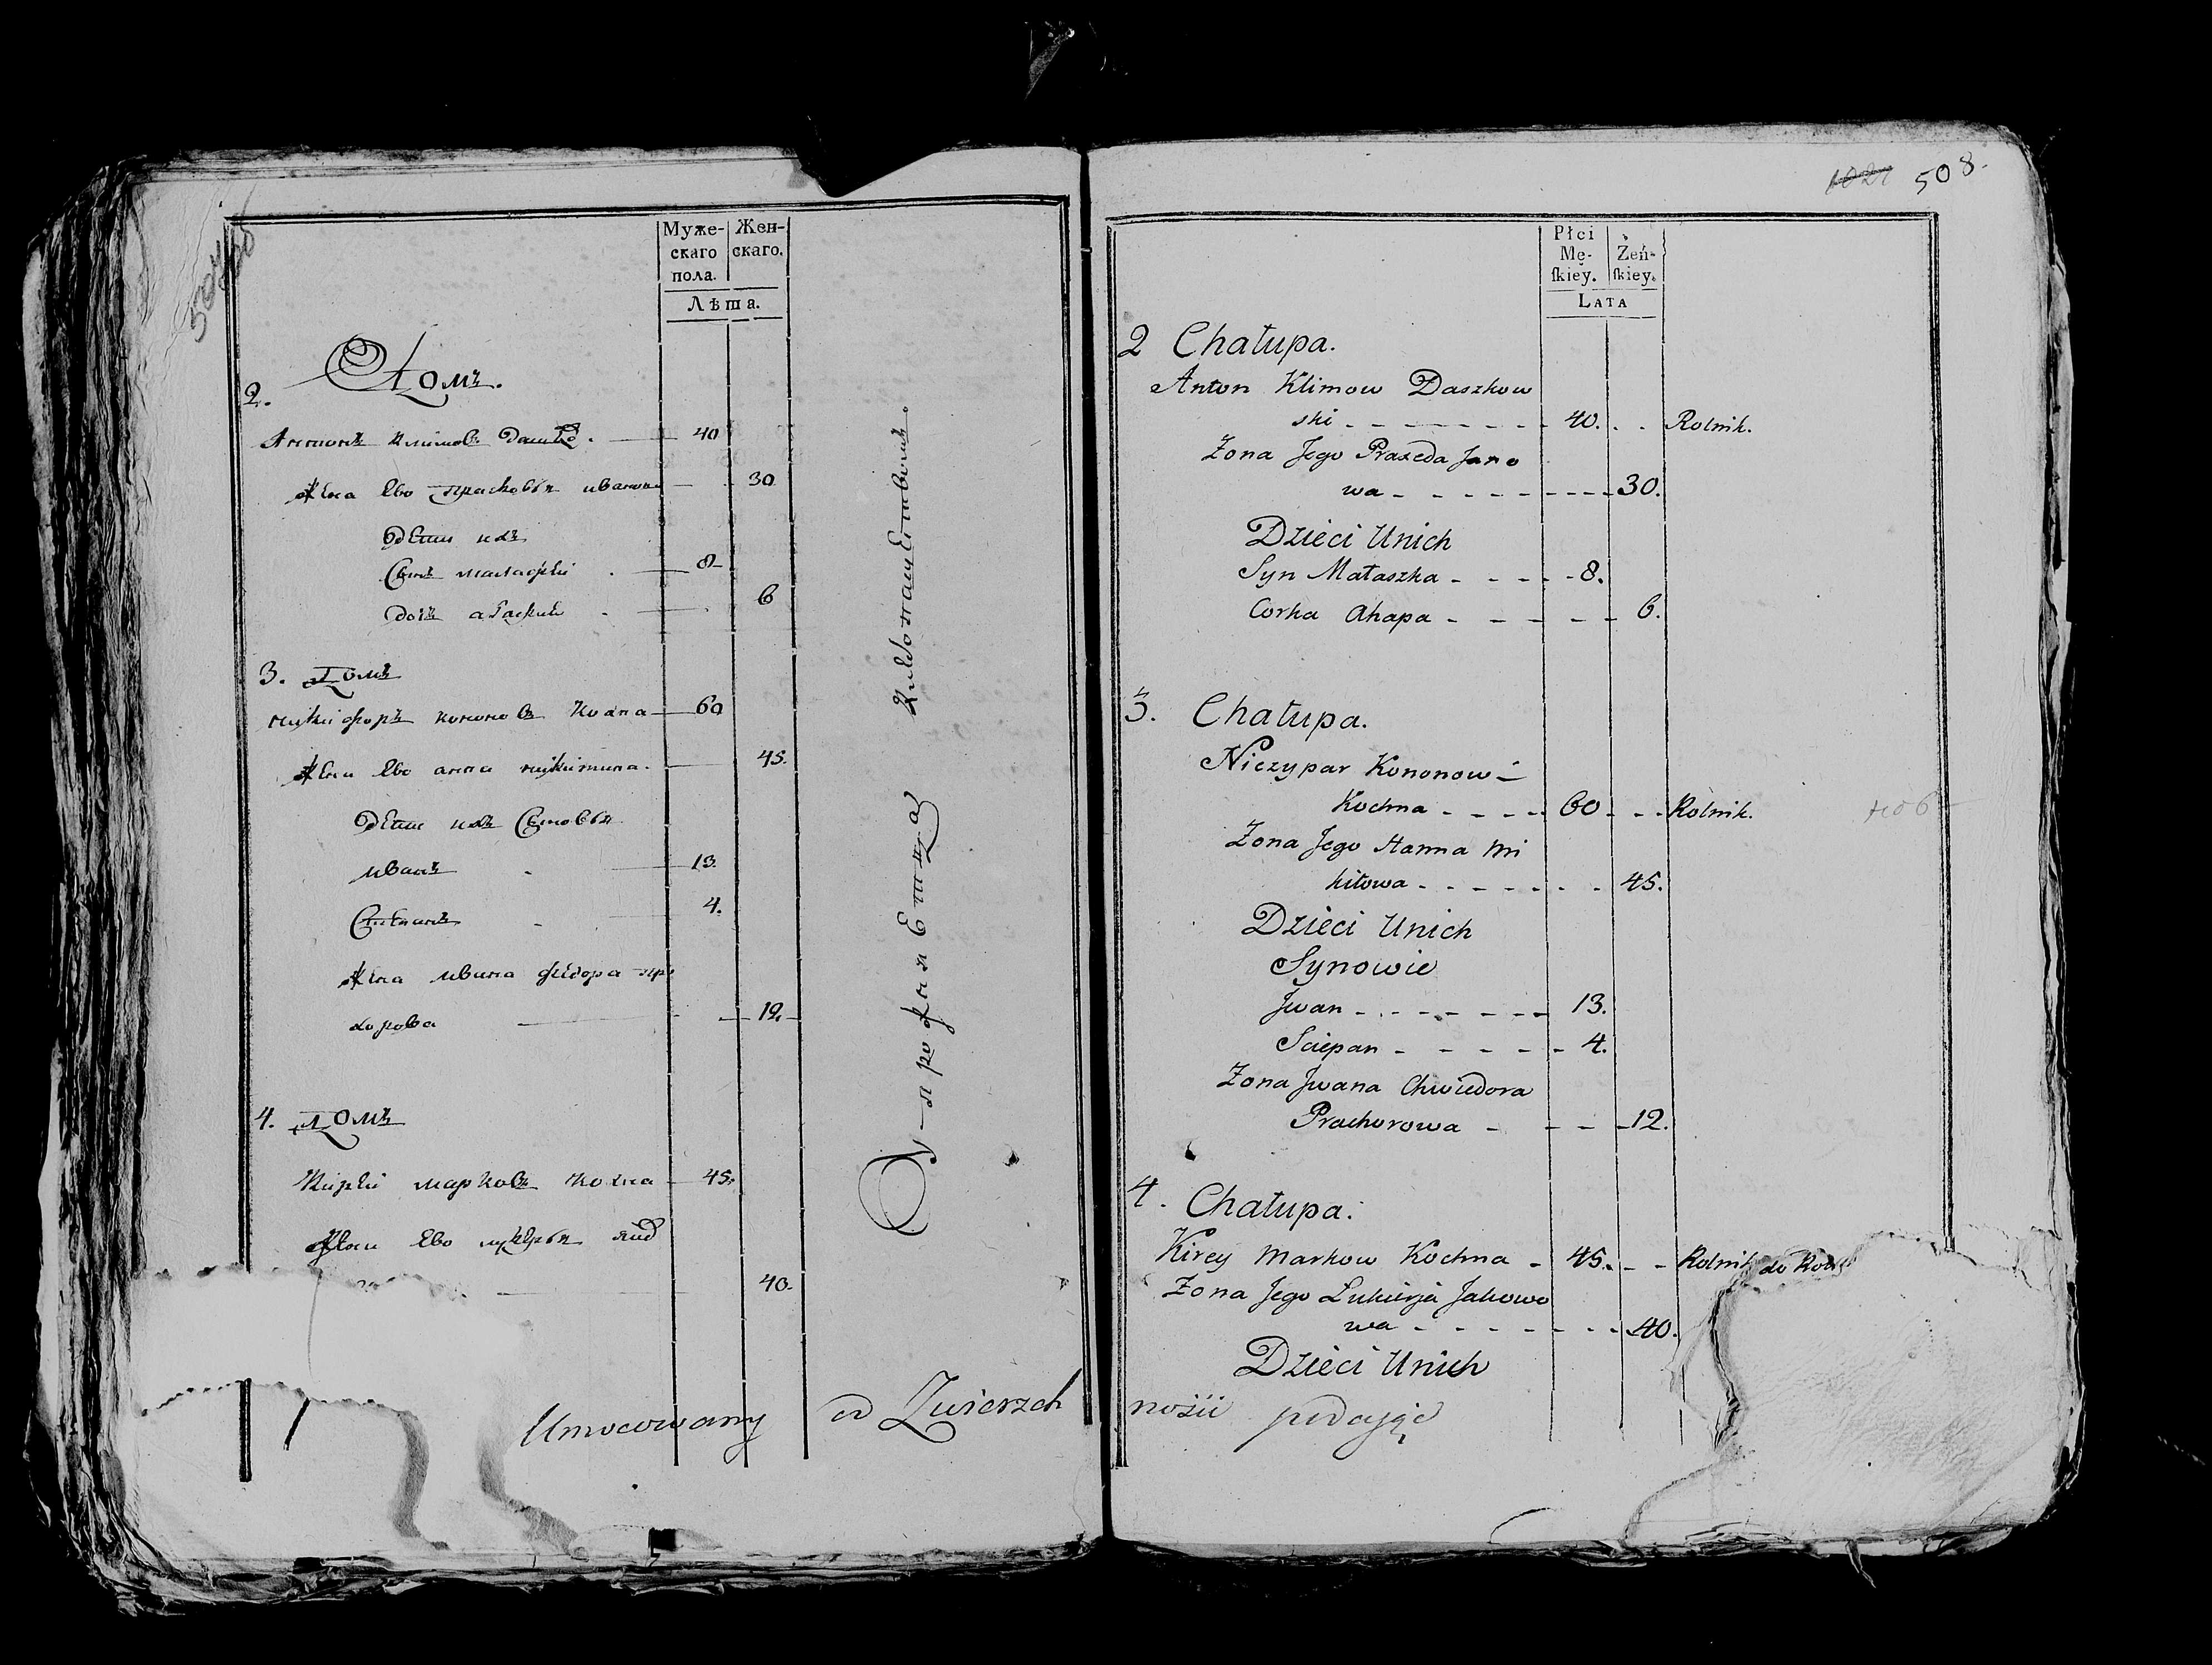 Муже-
скаго
пола.
Жен-
скаго.
Лѣта.
2. Домъ.
Антонъ Климовъ Дашко. 40
Жена Ево Прасковья иванова 30
Дети ихъ
Сынъ малафѣй 8
дочь агафия 6
3. Домъ
никифоръ кононовъ Кохна 60
Жена Ево анна никитина. 45.
Дети ихъ Сыновья
иванъ 13.
Степанъ 4.
Жена ивана федора про
хорова 12.
4. Домъ
Кирей марковъ Кохна 45.
Жена Ево лукерья
40.
Упражняетца
хлебопашествомъ.
Umocowany od Zwierzch
1021 508.
Płci
Mę-
ſkiey.
Żeń-
ſkiey.
LATA
2 Chałupa.
Anton Klimow Daszkow
ski 40. Rolnik.
Żona Jego Praxeda Jano
wa 30.
Dzieci Unich
Syn Małaszka 8.
Corka Ahapa 6.
3. Chałupa.
Niczypar Kononow
Kochna 60 Rolnik.
Żona Jego Hanna Mi
kitowa 45.
Dzieci Unich
Synowie
Jwan 13.
Sciepan 4.
Żona Jwana Chwiedora
Prachorowa 12.
4. Chałupa.
Kirey Markow Kochna 45. Rolnik do
Żona Jego Łukierja Jakowo
wa 40.
Dzieci Unich
ności podaję